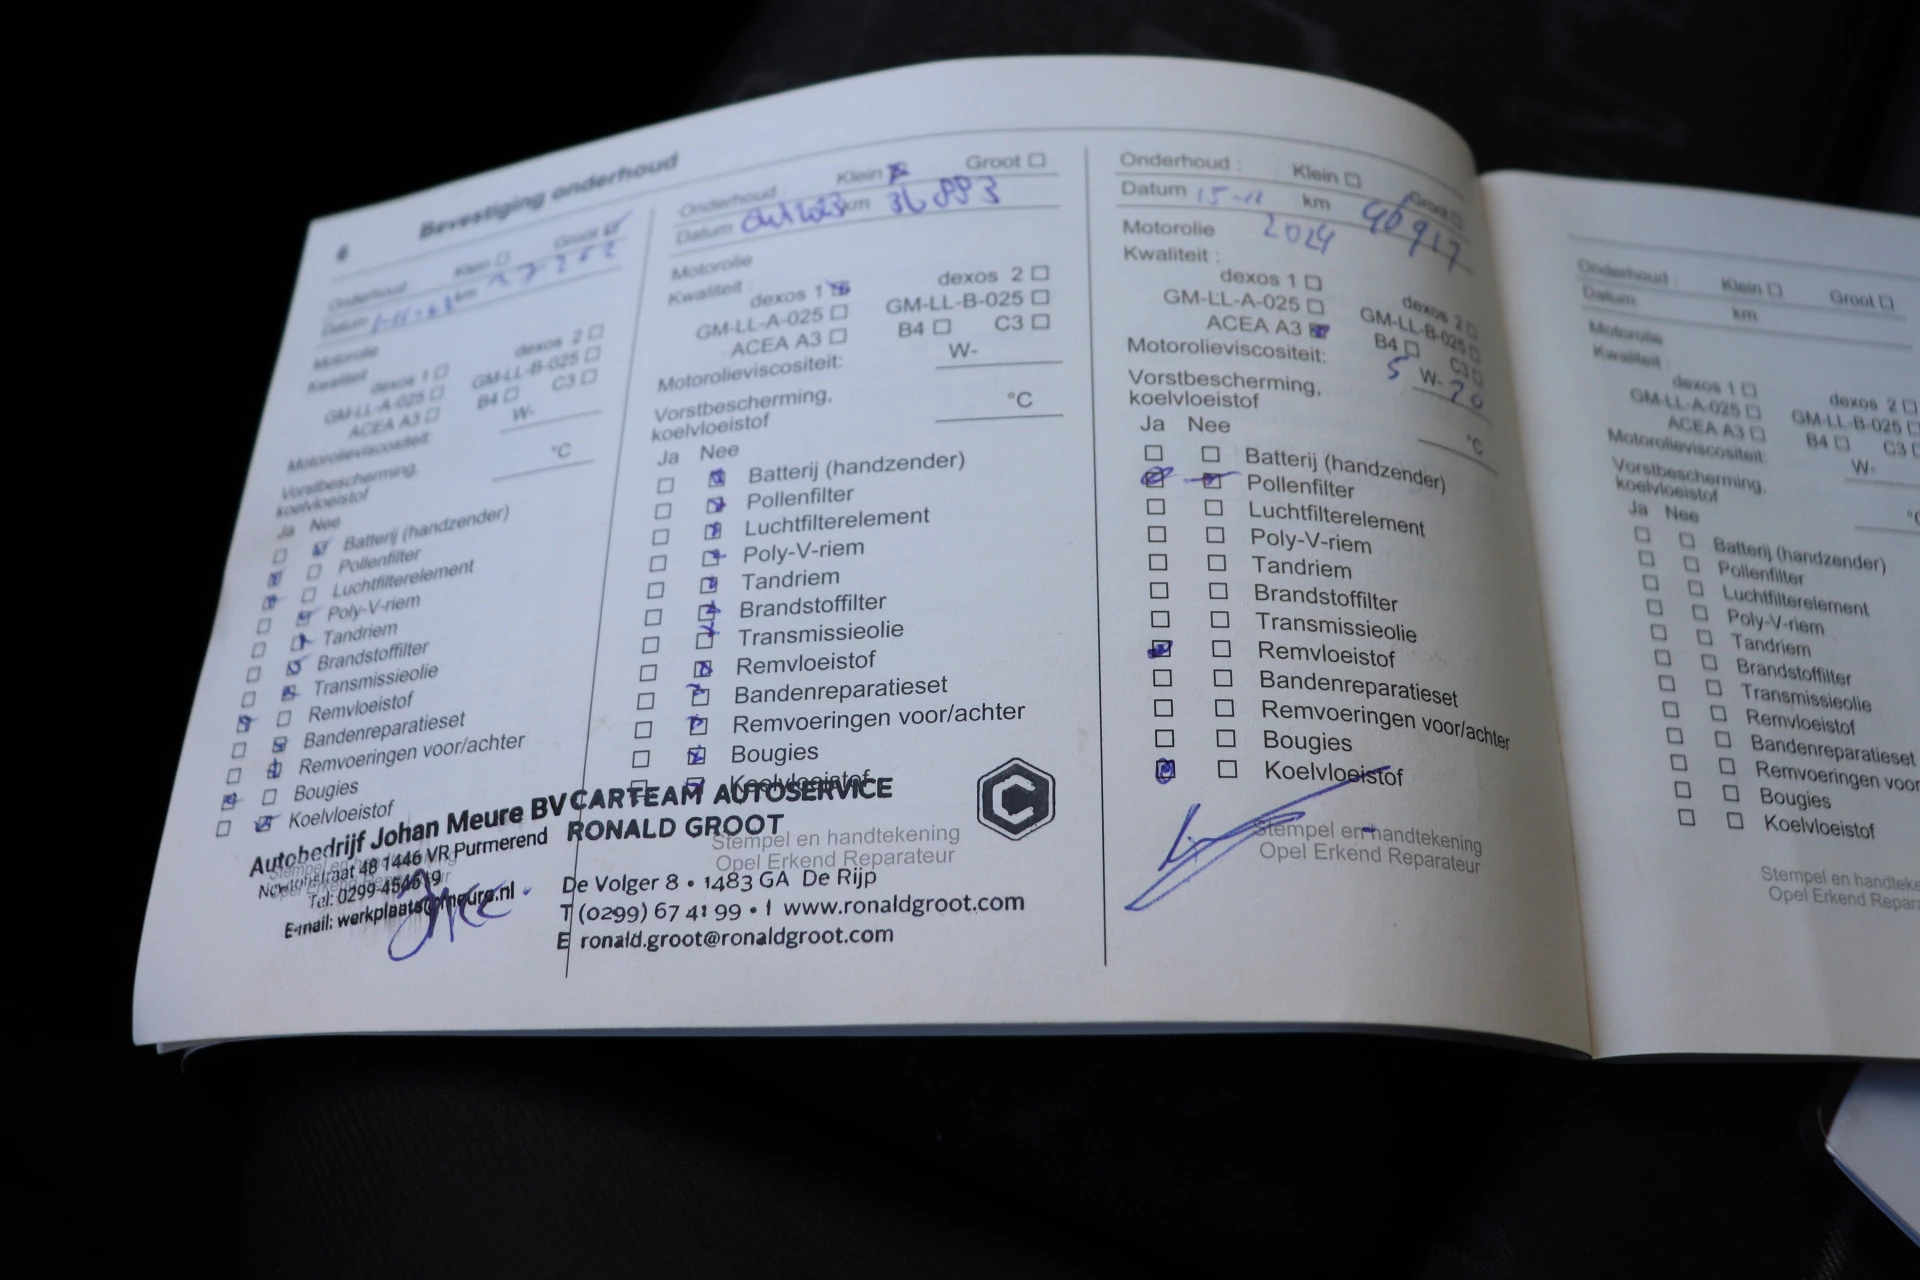 6
Bevestiging onderhoud
Onderhoud : Klein Groot
Datum km
Motorolie
Kwaliteit : dexos 1 dexos 2
GM-LL-A-025 GM-LL-B-025
ACEA A3 B4 C3
Motorolieviscositeit: W-
Vorstbescherming,
koelvloeistof °C
Ja Nee
Batterij (handzender)
Pollenfilter
Luchtfilterelement
Poly-V-riem
Tandriem
Brandstoffilter
Transmissieolie
Remvloeistof
Bandenreparatieset
Remvoeringen voor/achter
Bougies
Koelvloeistof
Autobedrijf Johan Meure BV
Newtonstraat 48 1446 VR Purmerend
Tel: 0299-454619
E-mail: werkplaats@meure.nl
Onderhoud : Klein Groot
Datum km 36883
Motorolie
Kwaliteit : dexos 1 dexos 2
GM-LL-A-025 GM-LL-B-025
ACEA A3 B4 C3
Motorolieviscositeit: W-
Vorstbescherming,
koelvloeistof °C
Ja Nee
Batterij (handzender)
Pollenfilter
Luchtfilterelement
Poly-V-riem
Tandriem
Brandstoffilter
Transmissieolie
Remvloeistof
Bandenreparatieset
Remvoeringen voor/achter
Bougies
Koelvloeistof
CARTEAM AUTOSERVICE
RONALD GROOT
Stempel en handtekening
Opel Erkend Reparateur
De Volger 8 • 1483 GA De Rijp
T (0299) 67 41 99 • I www.ronaldgroot.com
E ronald.groot@ronaldgroot.com
Onderhoud : Klein Groot
Datum 15-11 km 40917
Motorolie 2024
Kwaliteit :
dexos 1 dexos 2
GM-LL-A-025 GM-LL-B-025
ACEA A3 B4 C3
Motorolieviscositeit: 5 W-20
Vorstbescherming,
koelvloeistof °C
Ja Nee
Batterij (handzender)
Pollenfilter
Luchtfilterelement
Poly-V-riem
Tandriem
Brandstoffilter
Transmissieolie
Remvloeistof
Bandenreparatieset
Remvoeringen voor/achter
Bougies
Koelvloeistof
Stempel en handtekening
Opel Erkend Reparateur
Onderhoud : Klein Groot
Datum km
Motorolie
Kwaliteit :
dexos 1 dexos 2
GM-LL-A-025 GM-LL-B-025
ACEA A3 B4 C3
Motorolieviscositeit: W-
Vorstbescherming,
koelvloeistof
Ja Nee
Batterij (handzender)
Pollenfilter
Luchtfilterelement
Poly-V-riem
Tandriem
Brandstoffilter
Transmissieolie
Remvloeistof
Bandenreparatieset
Remvoeringen voor
Bougies
Koelvloeistof
Stempel en handteke
Opel Erkend Repara